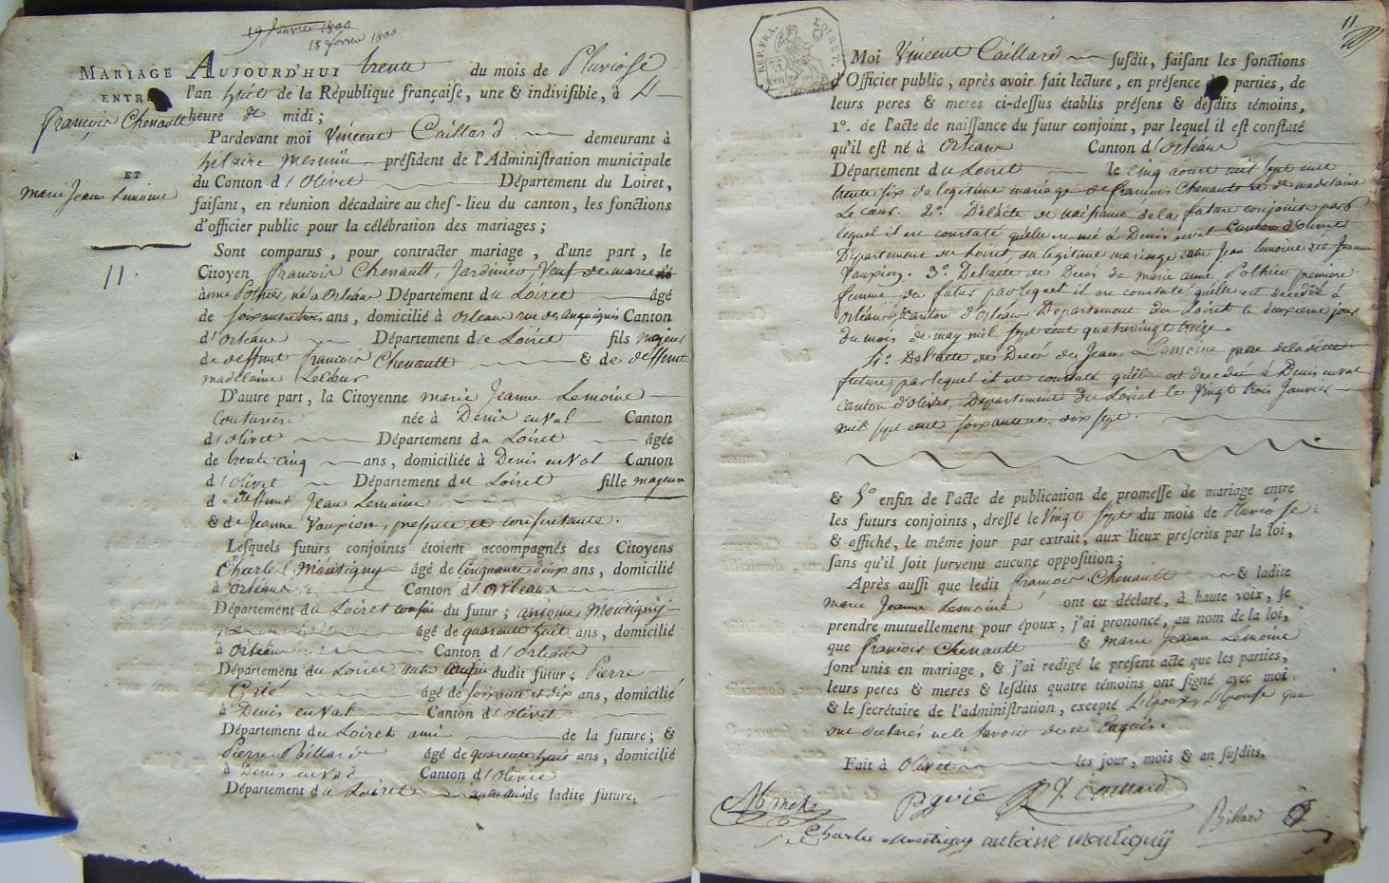 19 Janvier 1800
18 fevrier 1800
MARIAGE
ENTRE
françois Chenault
ET
marie Jeanne Lemoine
11.
AUJOURD'HUI trente du mois de Pluviose
l'an huit de la République françaiſe, une & indiviſible, à 4
heure de midi;
Pardevant moi Vincent Caillard demeurant à
hilaire Mesmin préſident de l'Adminiſtration municipale
du Canton d'Olivet Département du Loiret,
faiſant, en réunion décadaire au chef-lieu du canton, les fonctions
d'officier public pour la célébration des mariages;
Sont comparus, pour contracter mariage, d'une part, le
Citoyen françois Chenault, Jardinier, Veuf de marie
anne Pothier, né a Orléans Département du Loiret âgé
de soixante trois ans, domicilié à Orleans rue des anguignis Canton
d'Orleans Département du Loiret fils majeur
de deffunt françois Chenault & de deffunte
madelaine LeCoeur
D'autre part, la Citoyenne marie Jeanne Lemoine
Couturiere née à Denis en Val Canton
d'olivet Département du Loiret âgée
de trente cinq ans, domiciliée à Denis en Val Canton
d'olivet Département du Loiret fille majeure
de deffunt Jean Lemoine
& de Jeanne Vauxion, presente et consentante.
Leſquels futurs conjoints étoient accompagnés des Citoyens
Charles Montigny âgé de Cinquante deux ans, domicilié
à Orléans Canton d'Orleans
Département du Loiret cousin du futur; antoine Montigny
âgé de quarante huit ans, domicilié
à Orleans Canton d'Orleans
Département du Loiret autre cousin dudit futur; Pierre
âgé de soixante et dix ans, domicilié
à Denis en Val Canton d'olivet
Département du Loiret ami de la future; &
Pierre Billard âgé de quarante huit ans, domicilié
à Denis en Val Canton d'Olivet
Département du Loiret autre ami de ladite future,
11
Moi Vincent Caillard ſuſdit, faiſant les fonctions
d'Officier public, après avoir fait lecture, en préſence parties, de
leurs peres & meres ci-deſſus établis préſens & deſdits témoins,
1°. de l'acte de naiſſance du futur conjoint, par lequel il eſt conſtaté
qu'il eſt né à Orléans Canton d'Orleans
Département du Loiret le cinq aout mil sept cent
trente six de legitime mariage de françois Chenault et de madelaine
Le Coeur. 2°. De l'acte de naissance de la future conjointe par
lequel il est constaté qu'elle est né à Denis en val Canton d'olivet
Departement du Loiret, du legitime mariage de Jean lemoine et de Jeanne
Vauxion. 3°. De l'acte de Decès de marie anne Pothier premiere
femme du futur par lequel il est constaté qu'elle est decedée à
Orléans, Canton d'Orleans Departement du Loiret le deuxieme jour
du mois de may mil sept cent quatre vingt treize.
4°. De l'acte de Decès de Jean Lemoine pere de la
future, par lequel il est constaté qu'il est decedé à Denis en val
Canton d'Olivet, Departement du Loiret le Vingt trois Janvier
mil sept cent soixante et dix sept.
& 5° enfin de l'acte de publication de promeſſe de mariage entre
les futurs conjoints, dreſſé le Vingt sept du mois de Pluviose
& affiché, le même jour par extrait, aux lieux preſcrits par la loi,
ſans qu'il ſoit ſurvenu aucune oppoſition;
Après auſſi que ledit françois Chenault & ladite
marie Jeanne Lemoine ont eu déclaré, à haute voix, ſe
prendre mutuellement pour époux, j'ai prononcé, au nom de la loi,
que françois Chenault & marie Jeanne Lemoine
ſont unis en mariage, & j'ai redigé le preſent acte que les parties,
leurs peres & meres & leſdits quatre témoins ont ſigné avec moi
& le ſecrétaire de l'adminiſtration, excepté L'époux, L'épouse qui
ont declarés ne le savoir de ce Enquis.
Fait à Olivet les jour, mois & an ſuſdits.
V. Caillard
Billard
Charles Montigny antoine montignÿ